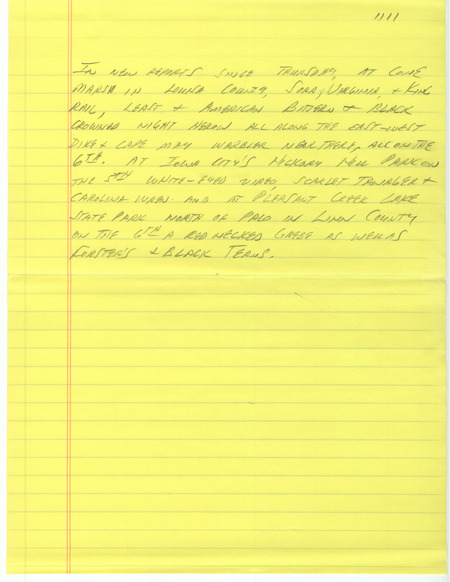 1111
IN NEW REPORTS SINCE THURSDAY, AT CONE
MARSH IN LOUISA COUNTY, SORA, VIRGINIA, + KING
RAIL, LEAST + AMERICAN BITTERN + BLACK
CROWNED NIGHT HERON ALL ALONG THE EAST-WEST
DIKE + CAPE MAY WARBLER NEAR THERE, ALL ON THE
6TH. AT IOWA CITY'S HICKORY HILL PARK ON
THE 5TH WHITE-EYED VIREO, SCARLET TANAGER +
CAROLINA WREN AND AT PLEASANT CREEK LAKE
STATE PARK NORTH OF PALO IN LINN COUNTY
ON THE 6TH A RED NECKED GREBE AS WELL AS
FORSTER'S + BLACK TERNS.